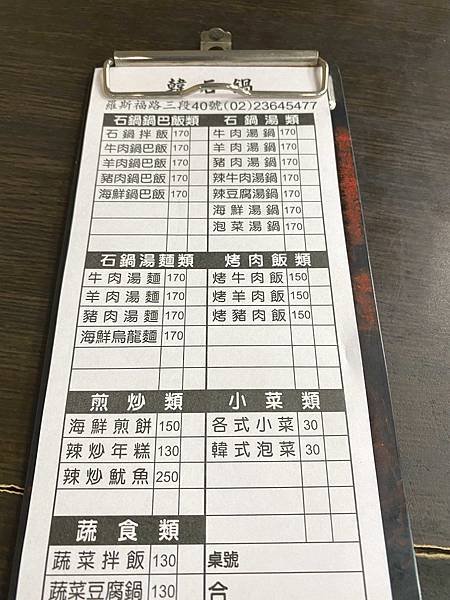 韓石鍋
羅斯福路三段40號(02)23645477
石鍋鍋巴飯類
石鍋拌飯 170
牛肉鍋巴飯 170
羊肉鍋巴飯 170
豬肉鍋巴飯 170
海鮮鍋巴飯 170
石鍋湯類
牛肉湯鍋 170
羊肉湯鍋 170
豬肉湯鍋 170
辣牛肉湯鍋 170
辣豆腐湯鍋 170
海鮮湯鍋 170
泡菜湯鍋 170
石鍋湯麵類
牛肉湯麵 170
羊肉湯麵 170
豬肉湯麵 170
海鮮烏龍麵 170
烤肉飯類
烤牛肉飯 150
烤羊肉飯 150
烤豬肉飯 150
煎炒類
海鮮煎餅 150
辣炒年糕 130
辣炒魷魚 250
小菜類
各式小菜 30
韓式泡菜 30
蔬食類
蔬菜拌飯 130
蔬菜豆腐鍋 130
桌號
合